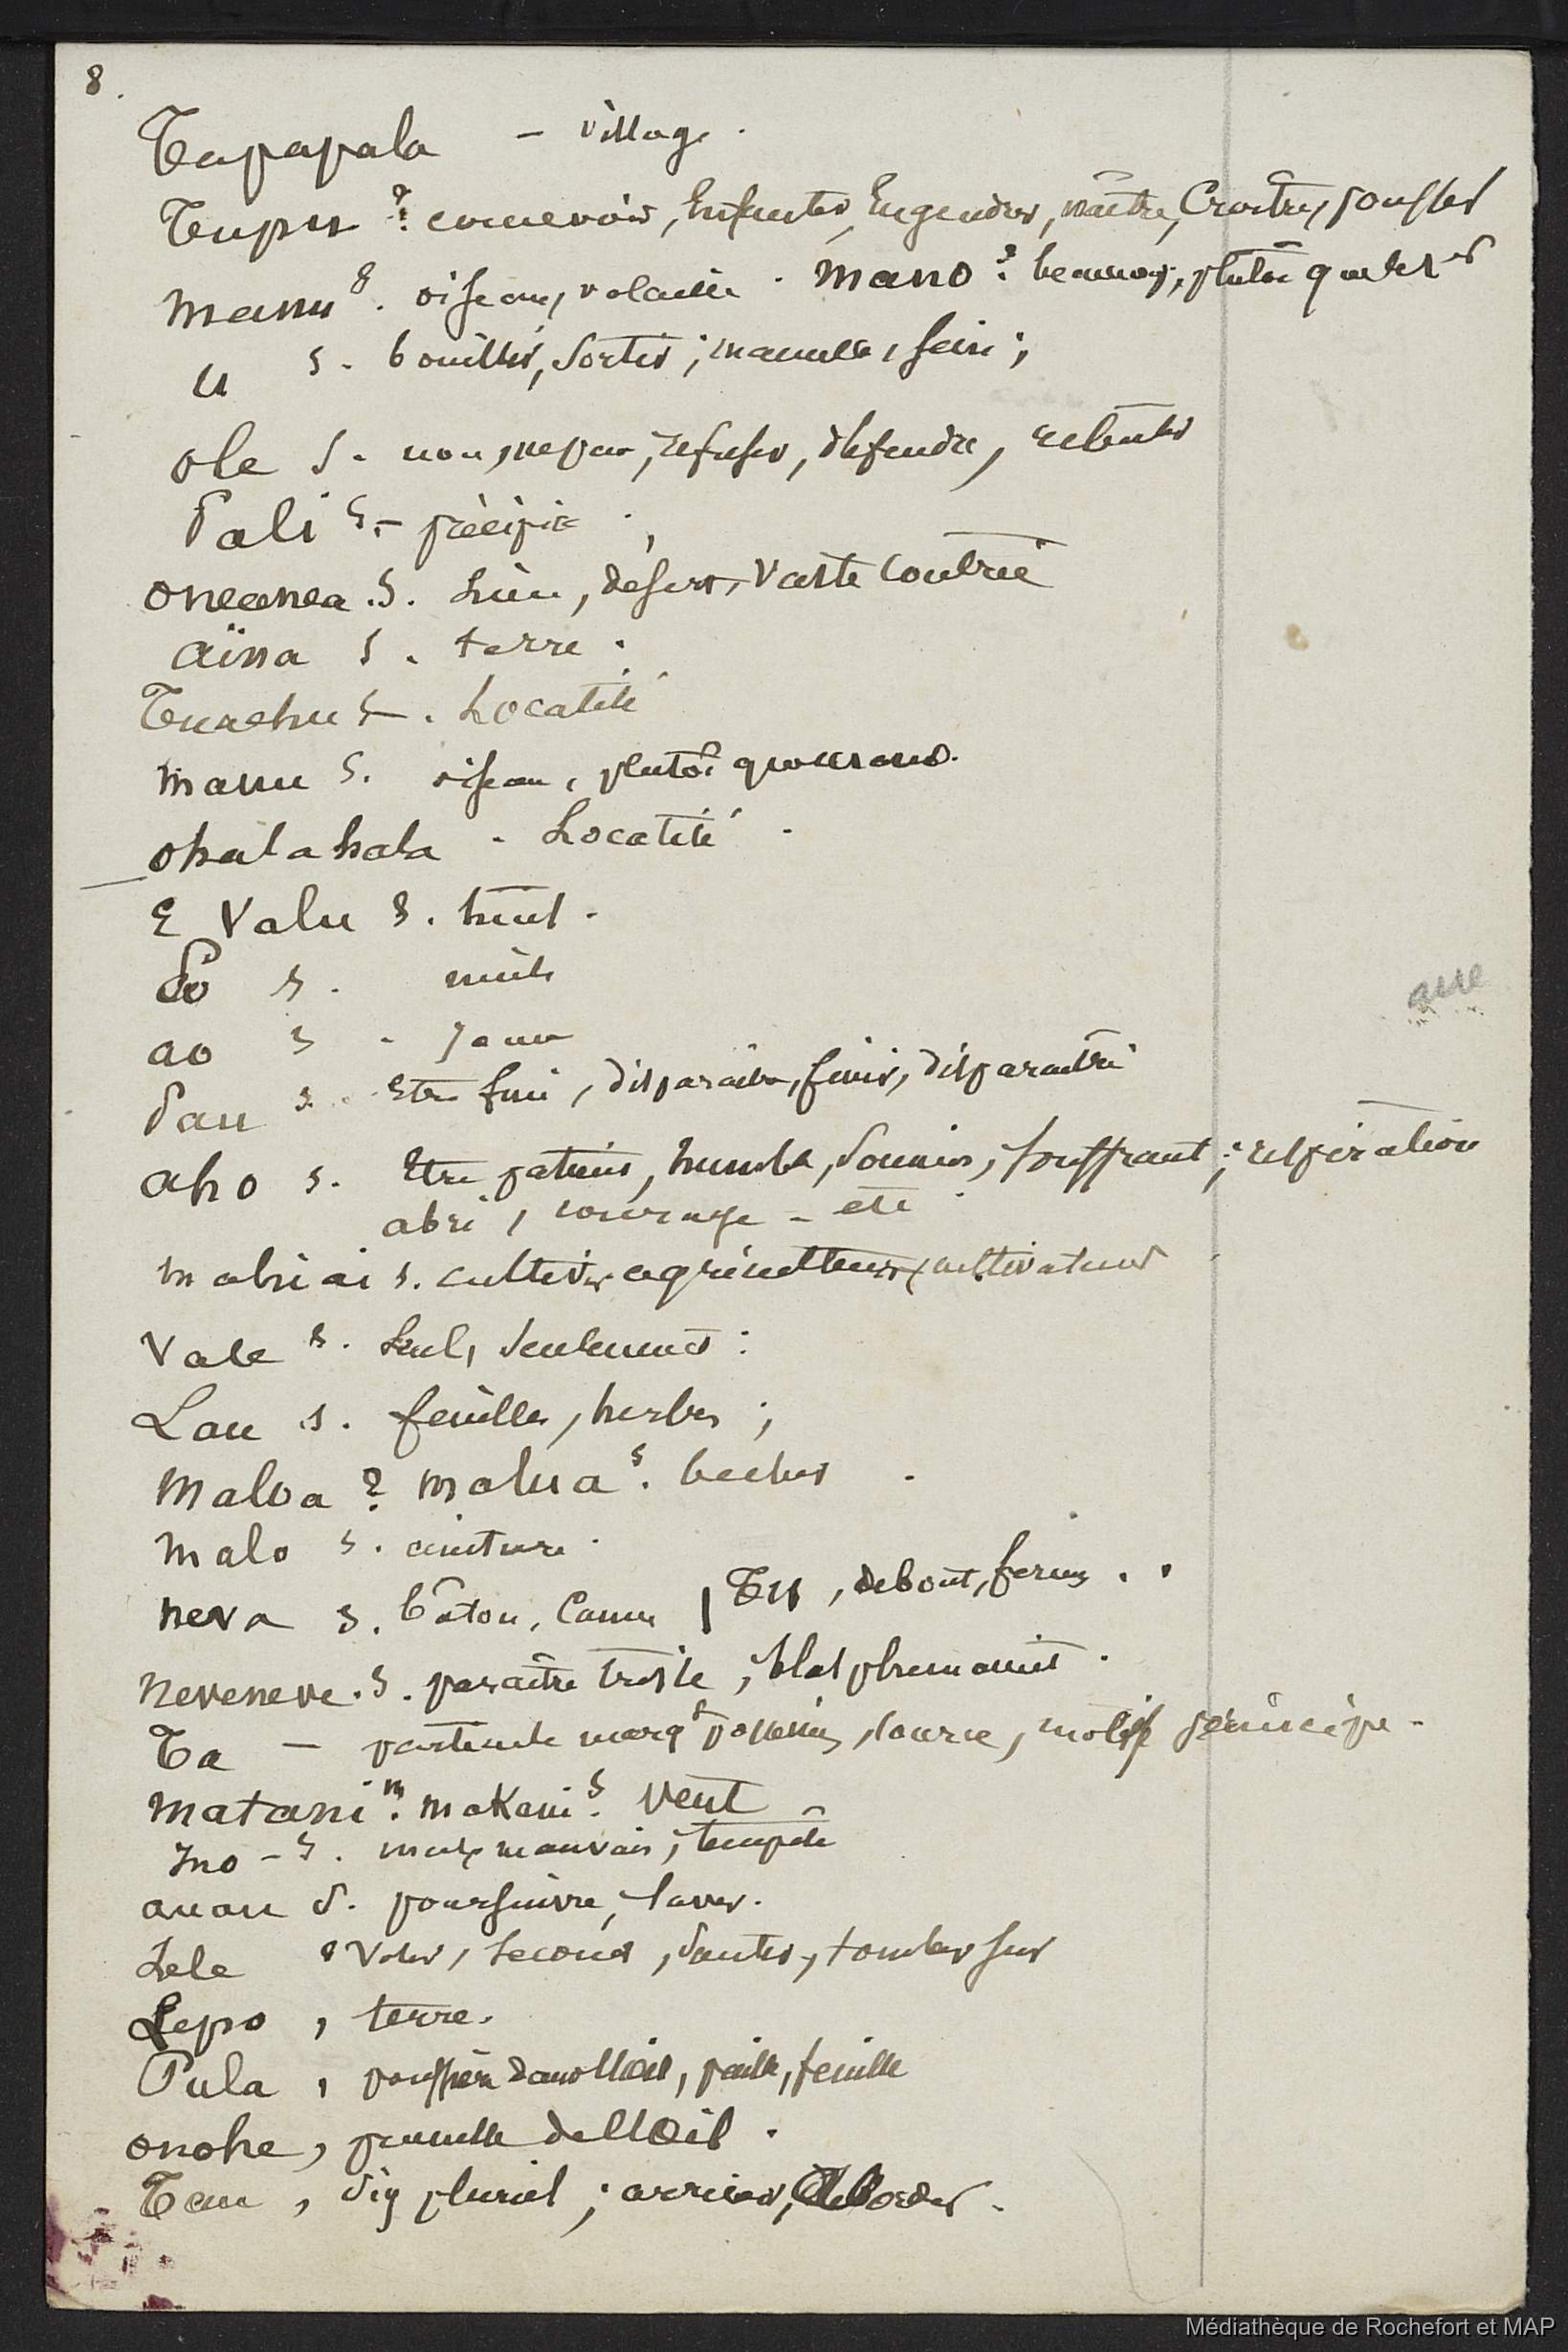 8.
Tapapala - village.
Tupu ? concevoir, Enfanter, Engendrer, naître, Croître, pousser
manu s. oiseau, volaille. mano ? beaucoup, plutôt
u s. bouillir, sortir ; mamelle, sein ;
ole s. non, ne pas, refuser, défendre, rebuter
Pali s. - précipice ;
oneanea .s. Lieu, désert, vaste contrée
aïna s. terre.
Tuaehu s - . Localité
manu s. oiseau, plutôt
ohalahala - Localité.
E Valu s. huit.
Po s. nuit
ao s - jour
aue
Pau s. Etre fini, disparaître, finir, disparaître
aho s. Etre patient, humble, soumis, souffrant ; respiration
abri, courage - etc
mahiai s. cultiver agriculteur, cultivateur
Vale s. Seul, seulement :
Lau s. feuilles, herbes ;
Maloa ? mahua s. becher.
malo s. ceinture.
neva s. bâton, Canne | Tu, debout, ferme . .
neveneve .s. paraître triste, blasphemant.
Ta - particule marqt possession, source, motif principe -
matani m. makani s. Vent -
Ino - s. mal, mauvais, tempête
auau s. poursuivre, laver.
Lele s Voler, secouer, sauter, tomber sur
Lepo, terre.
Pula, poussière dans l'oeil, paille, feuille
onohe, prunelle de l'Oeil.
Tau, sig pluriel ; arriver, aborder.
Médiathèque de Rochefort et MAP